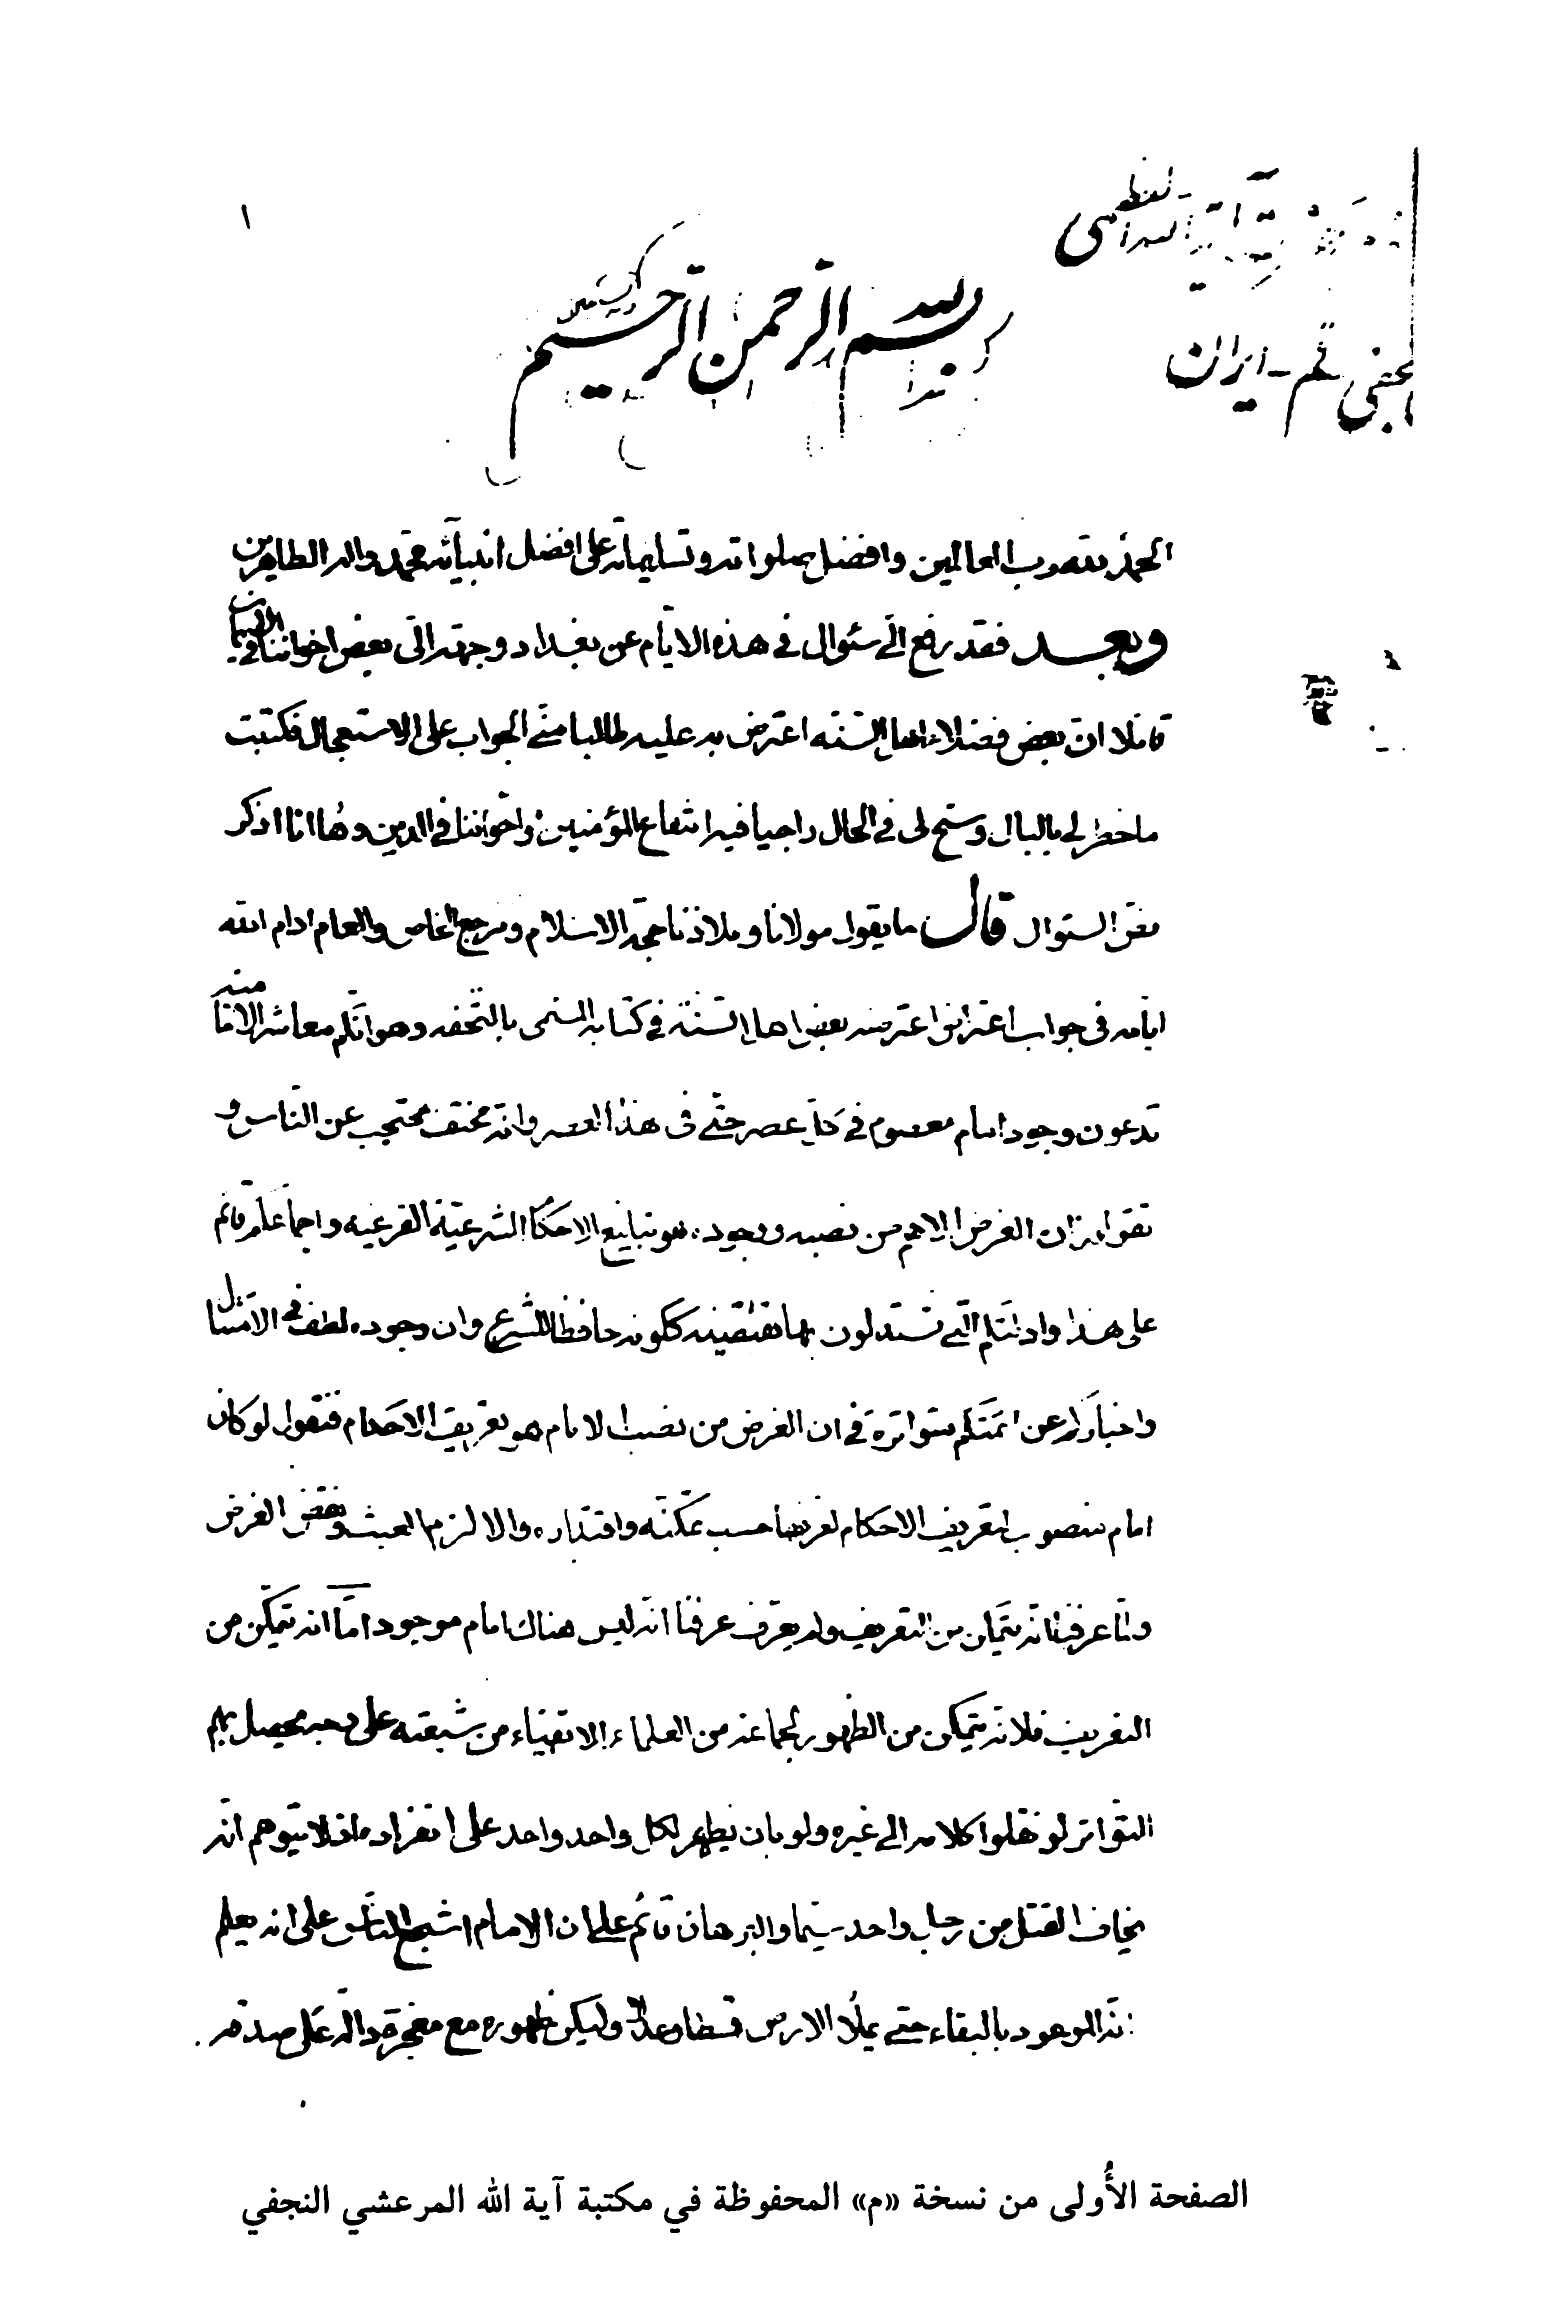 ١
العظمى
النجفي قم - ايران
بسم الله الرحمن الرحيم
الحمد لله رب العالمين وافضل صلواته وتسليماته على افضل انبيآئه محمد واله الطاهرين
وبعد فقد رفع الىّ سئوال في هذه الايّام عن بغداد وجهه الى بعض اخواننا في الايمان
قائلا انّ بعض فضلاء اهل السّنّه اعترض به عليه طالبا منّي الجواب على الاستعجال فكتبت
ما خطر لي بالبال وسنح لي في الحال راجيا فيه انتفاع المؤمنين واخواننا في الدين وها انا اذكر
نصّ السئوال قال ما يقول مولانا وملاذنا حجّة الاسلام ومرجع الخاص والعام ادام الله
ايامه في جواب اعتراض اعترضه بعض اهل السّنّة في كتابه المسمى بالتّحفه وهو انّكم معاشر الاماميه
تدعون وجود امام معصوم في كل عصر حتّى في هذا العصر وانّه مختف محتجب عن النّاس و
تقولون ان الغرض الاهم من نصبه ووجوده هو تبليغ الاحكام الشرعيّة الفرعيه واجماعكم قائم
على هذا وادلتكم الّتي تستدلون بها تقتضيه ككونه حافظا للشّرع وان وجوده لطف في الامتثال
واخباركم عن ائمّتكم متواترة في ان الغرض من نصب الامام هو تعريف الاحكام فنقول لو كان
امام منصوب لتعريف الاحكام لعرفها حسب تمكنه واقتداره والا لزم العبث ونقض الغرض
ولمّا عرفنا انّه يتمكن من التعريف ولم يعرّف عرفنا انّه ليس هناك امام موجود امّا انه يتمكن من
التعريف فلانه يتمكن من الظهور لجماعة من العلماء الاتقياء من شيعته على وجه يحصل بهم
التّواتر لو نقلوا كلامه الى غيره ولو بان يظهر لكل واحد واحد على انفراده اذ لا يتوهم انّه
يخاف القتل من رجل واحد سيّما والبرهان قائم على ان الامام اشجع النّاس على انه يعلم
انّه الموعود بالبقاء حتى يملأ الارض قسطا وعدلا وليكن ظهوره مع معجزة دالّة على صدقه
الصفحة الأُولى من نسخة «م» المحفوظة في مكتبة آية الله المرعشي النجفي